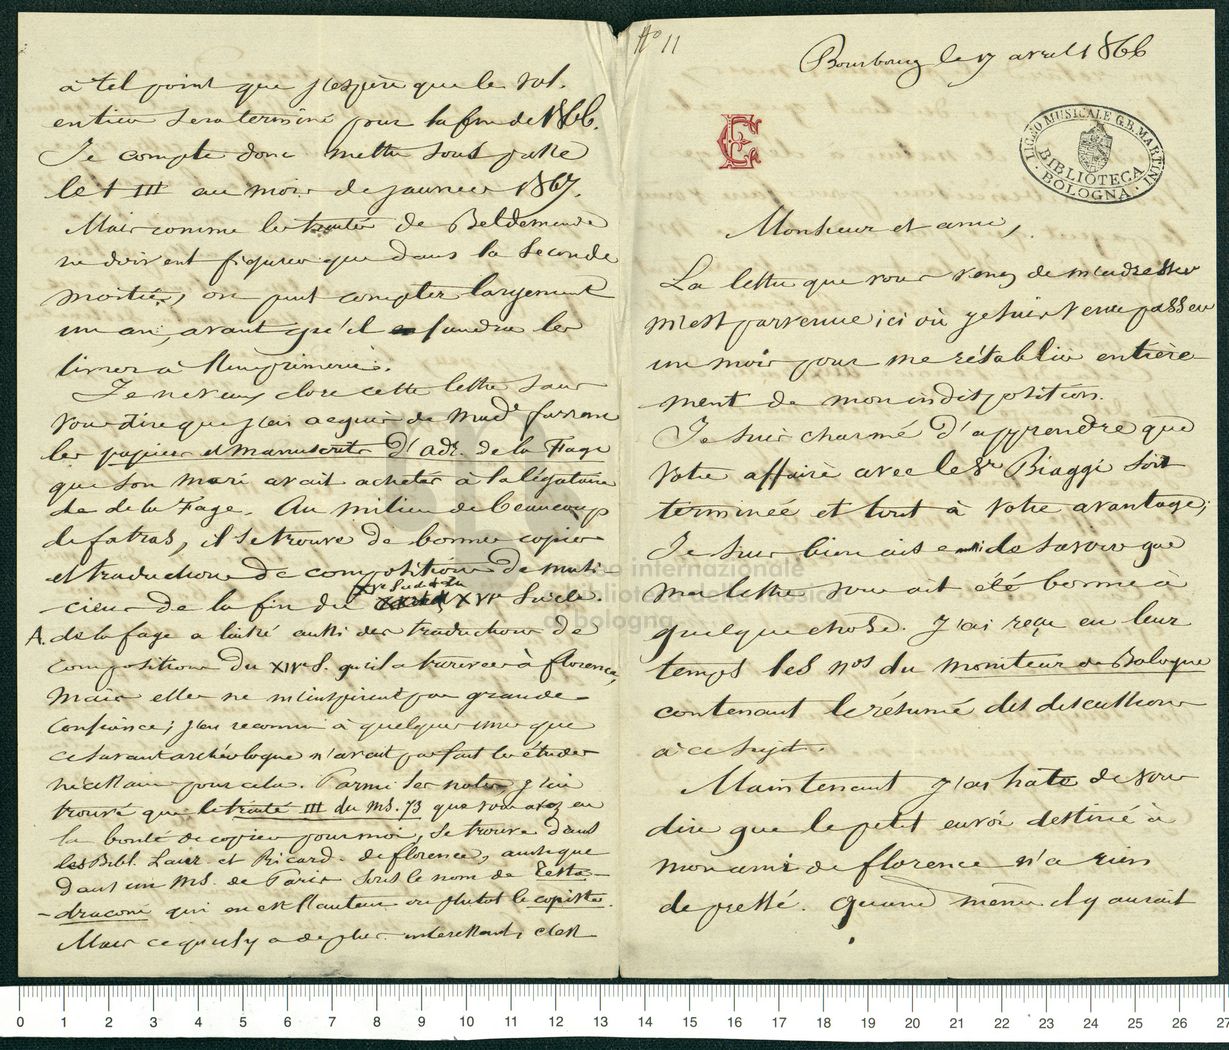 No 11
Bourbourg le 17 avril 1866
LICEO MUSICALE G.B. MARTINI
BIBLIOTECA
BOLOGNA
Monsieur et ami,
La lettre que vous venez de m'adresser
m'est parvenue ici où je suis venu passer
un mois pour me rétablir entière-
ment de mon indisposition.
Je suis charmé d'apprendre que
votre affaire avec le Sr Biaggi soit
terminée et tout à votre avantage;
Je suis bien aise aussi de savoir que
ma lettre vous ait été bonne à
quelque chose. J'ai reçu en leur
temps les nos du moniteur de Bologne
contenant le résumé des discussions
à ce sujet.
Maintenant j'ai hate de vous
dire que le petit envoi destiné à
mon ami de florence n'a rien
de pressé. Quand même il y aurait
à tel point que j'espère que le vol.
entier sera terminé pour la fin de 1866.
Je compte donc mettre sous presse
le t III au mois de janvier 1867.
Mais comme les traités de Beldemande
ne doivent figurer que dans la seconde
moitié, on peut compter largement
un an, avant qu'il faudra les
livrer à l'imprimerie.
Je ne veux clore cette lettre sans
vous dire que j'ai acquis de Made farrenc
les papiers et manuscrits d'Adr. de la Fage
que son mari avait acheté à la légataire
de de la Fage. Au milieu de beaucoup
de fatras, il se trouve de bonnes copies
et traductions de compositions de musi-
ciens de la fin du XVe siècle et du XVIe siècle.
A. de la fage a laissé aussi des traductions de
compositions du XIVe S. qu'il a trouvées à florence,
mais elles ne m'inspirent pas grande
confiance; j'ai reconnu à quelques unes que
ce savant archéologue n'avait pas fait les études
nécessaires pour cela. Parmi ses notes, j'ai
trouvé que le traité III du ms. 73 que vous avez eu
la bonté de copier pour moi, se trouve dans
les Bibl. Laur et Ricard. de florence, ainsi que
dans un ms. de Paris sous le nom de Testa-
-draconi qui en est l'auteur ou plutôt le copiste.
Mais ce qu'il y a de plus intéressant, c'est
museo internazionale
e biblioteca della musica
di bologna
0 1 2 3 4 5 6 7 8 9 10 11 12 13 14 15 16 17 18 19 20 21 22 23 24 25 26 27